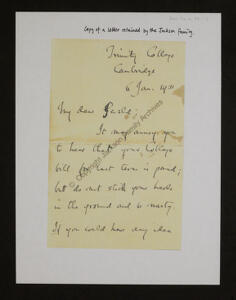 Copy of a letter retained by the Jackson family
Trinity College
Cambridge
6 Jan. 1911
My dear
It may annoy you
to hear that your College
bill for last term is paid;
but do not stick your heels
in the ground and be nasty.
If you could have any idea
© Copyright Jackson Family Archives